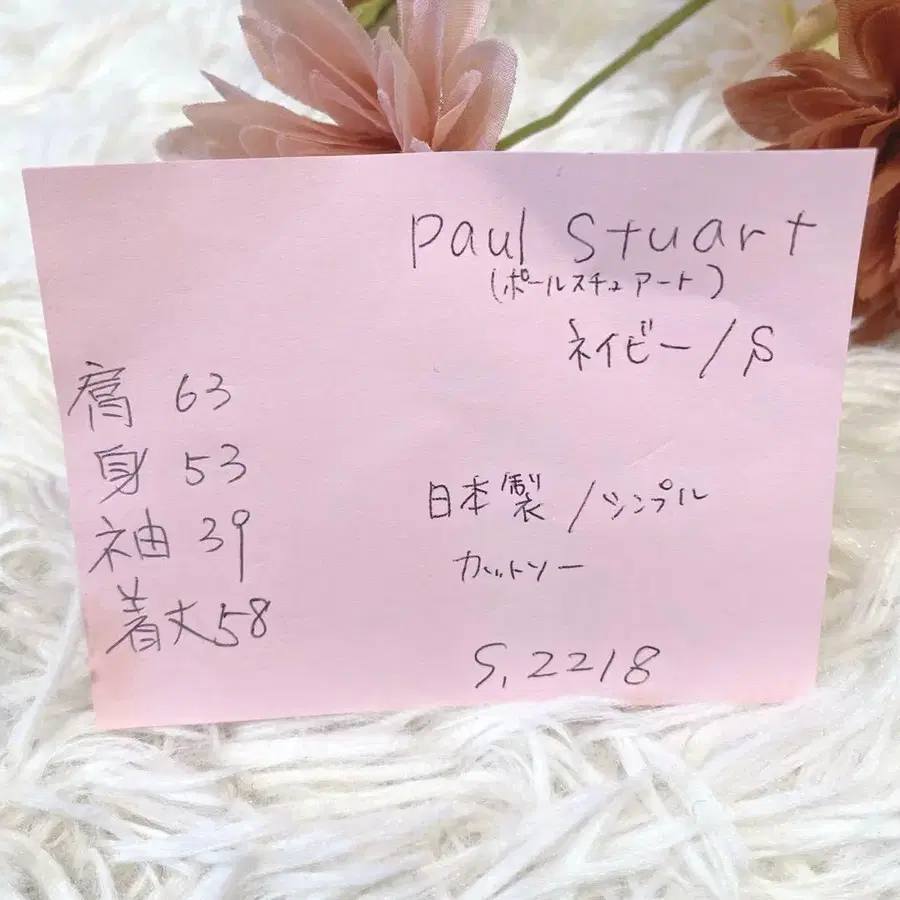 Paul Stuart
(ポールスチュアート)
ネイビー/S
肩 63
身 53
袖 39
着丈58
日本製/シンプル
カットソー
S,2218